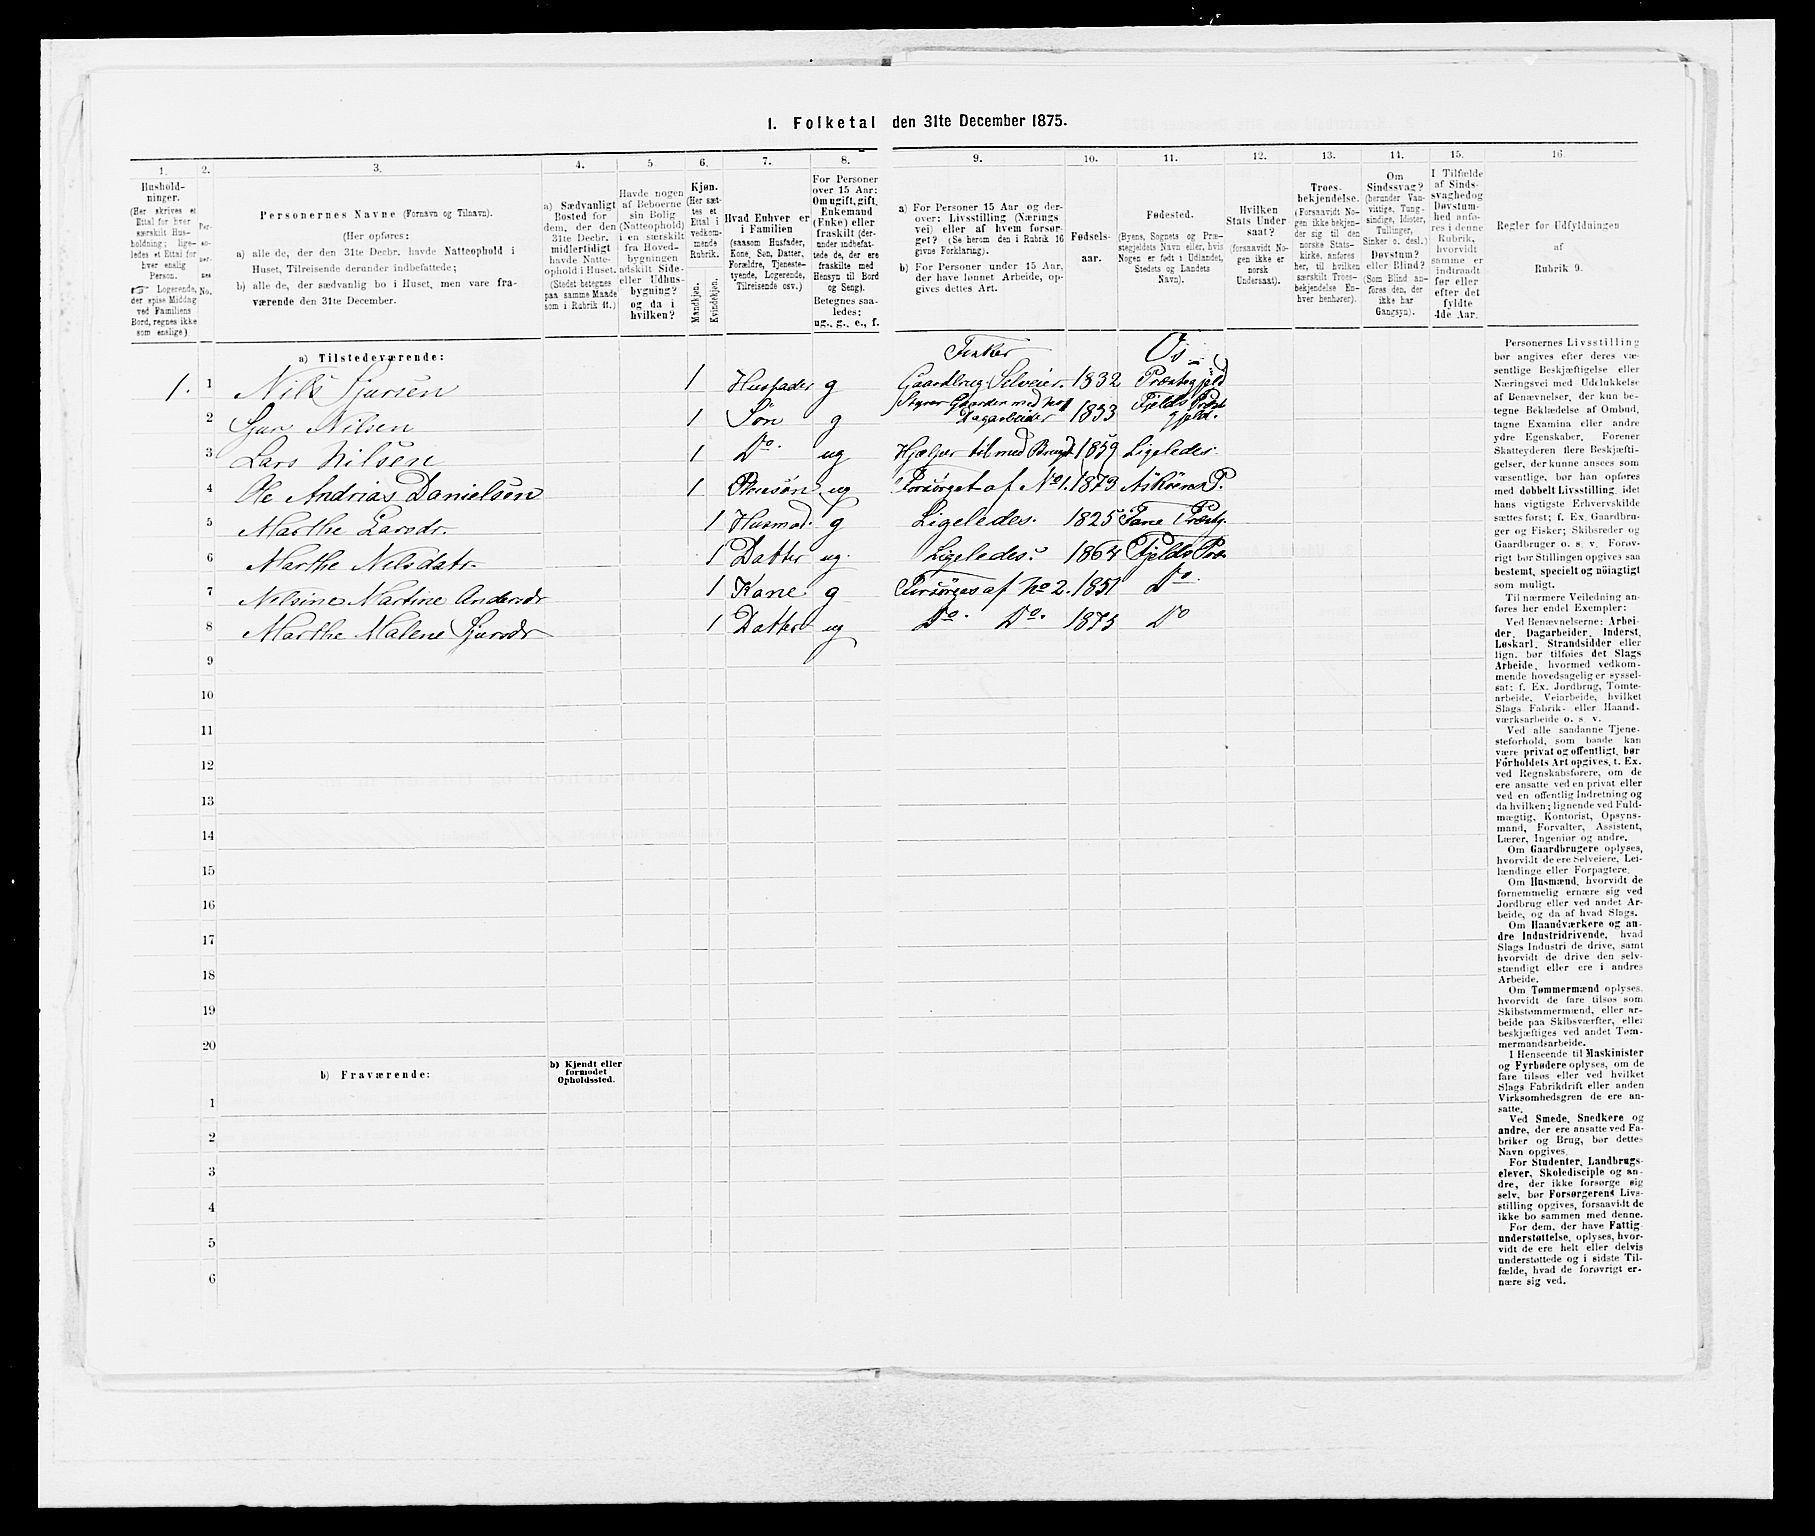 1. Folketal den 31te December 1875.
1. 2. 3. 4. 5. 6. 7. 8. 9. 10. 11. 12. 13. 14. 15. 16.
Hushold-
ninger.
(Her skrives et
Ettal for hver
særskilt Hus-
holdning; lige-
ledes et Ettal for
hver enslig
Person.
☞ Logerende,
der spise Middag
ved Familiens
Bord, regnes ikke
som enslige.)
Per-
so-
ner-
nes
No.
Personernes Navne (Fornavn og Tilnavn).
(Her opføres:
a) alle de, der den 31te Decbr. havde Natteophold i
Huset, Tilreisende derunder indbefattede;
b) alle de, der sædvanlig bo i Huset, men vare fra-
værende den 31te December.
a) Sædvanligt
Bosted for
dem, der den
31te Decbr.
midlertidigt
havde Natte-
ophold i Huset.
(Stedet betegnes
paa samme Maade
som i Rubrik 11.)
Havde nogen
af Beboerne
sin Bolig
(Natteophold)
i en særskilt
fra Hoved-
bygningen
adskilt Side-
eller Udhus-
bygning?
og da i
hvilken?
Kjøn.
(Her sæt-
tes et
Ettal i
vedkom-
mende
Rubrik.
Mandkjøn.
Kvindekjøn.
Hvad Enhver er
i Familien
(saasom Husfader,
Kone, Søn, Datter,
Forældre, Tjeneste-
tyende, Logerende,
Tilreisende osv.)
For Personer
over 15 Aar:
Om ugift, gift,
Enkemand
(Enke) eller
fraskilt (der-
under indbefat-
tede de, der ere
fraskilte med
Hensyn til Bord
og Seng).
Betegnes saa-
ledes:
ug., g., e., f.
a) For Personer 15 Aar og der-
over: Livsstilling (Nærings
vei) eller af hvem forsør-
get? (Se herom den i Rubrik 16
givne Forklaring).
b) For Personer under 15 Aar,
der have lønnet Arbeide, op-
gives dettes Art.
Fødsels-
aar.
Fødested.
(Byens, Sognets og Præ-
stegjeldets Navn eller, hvis
Nogen er født i Udlandet,
Stedets og Landets
Navn).
Hvilken
Stats Under
saat?
(forsaavidt No-
gen ikke er
norsk
Undersaat).
Troes-
bekjendelse.
(Forsaavidt No-
gen ikke bekjen-
der sig til den
norske Stats-
kirke, anføres
her, til hvilken
særskilt Troes-
bekjendelse En-
hver henhører).
Om
Sindssvag?
(herunder Van-
vittige, Tung-
sindige, Idioter,
Tullinger,
Sinker o. desl.)
Døvstum?
eller Blind?
(Som Blind an-
føres den, der
ikke har
Gangsyn).
I Tilfælde
af Sinds-
svaghedog
Døvstum-
hed anfø-
res i denne
Rubrik,
hvorvidt
samme er
indtraadt
før eller
efter det
fyldte
4de Aar.
Regler for Udfyldningen
af
Rubrik 9.
a) Tilstedeværende:
Fisker Os
1. 1 Nils Sjursen 1 Husfader g Gaardbrug Selveier. 1832 Præstegjeld
2 Sjur Nilsen 1 Søn g Styrer Gaarden med No 1 Dagarbeider 1853 Fjelds Præst gjeld.
3 Lars Nilsen 1 Do. ug Hjælper til med Bruget 1859 Ligeledes.
4 Ole Andrias Danielsen 1 ug Forsørget af No 1. 1873 Askøens P.
5 Marthe Larsdr. 1 Husmod. g Ligeledes. 1825 Fane Præstg.
6 Marthe Nelsdatr 1 Datter ug. Ligeledes. 1864 Fjelds Præ.
7 Nilsine Martine Andersdr 1 Kone g Forsørges af No 2. 1851 Do.
8 Marthe Malene Sjursdr 1 Datter ug Do. Do. 1875 Do
9
10
11
12
13
14
15
16
17
18
19
20
b) Fraværende:
b) Kjendt eller
formodet
Opholdssted.
1
2
3
4
5
6
Personernes Livsstilling
bør angives efter deres væ-
sentlige Beskjæftigelse eller
Næringsvei med Udelukkelse
af Benævnelser, der kun be-
tegne Beklædelse af Ombud,
tagne Examina eller andre
ydre Egenskaber. Forener
Skatteyderen flere Beskjæfti-
gelser, der kunne ansees som
væsentlige, bør han opføres
med dobbelt Livsstilling, idet
hans vigtigste Erhvervskilde
sættes først; f. Ex. Gaardbru-
ger og Fisker; Skibsreder og
Gaardbruger o. s. v. Forøv-
rigt bør Stillingen opgives saa
bestemt, specielt og nöiagtigt
som muligt.
Til nærmere Veiledning an-
føres her endel Exempler:
Ved Benævnelserne: Arbei-
der, Dagarbeider, Inderst,
Løskarl, Strandsidder eller
lign. bør tilføies det Slags
Arbeide, hvormed vedkom-
mende hovedsagelig er syssel-
sat; f. Ex. Jordbrug, Tomte-
arbeide, Veiarbeide, hvilket
Slags Fabrik- eller Haand-
værksarbeide o. s. v.
Ved alle saadanne Tjene-
steforhold, som baade kan
være privat og offentligt, bør
Forholdets Art opgives, t. Ex.
ved Regnskabsførere, om de
ere ansatte ved en privat eller
ved en offentlig Indretning og
da hvilken; lignende ved Fuld-
mægtig, Kontorist, Opsyns-
mand, Forvalter, Assistent,
Lærer, Ingeniør og andre.
Om Gaardbrugere oplyses,
hvorvidt de ere Selveiere, Lei-
lændinge eller Forpagtere.
Om Husmænd, hvorvidt de
fornemmelig ernære sig ved
Jordbrug eller ved andet Ar-
beide, og da af hvad Slags.
Om Haandværkere og an-
dre Industridrivende, hvad
Slags Industri de drive, samt
hvorvidt de drive den selv-
stændigt eller ere i andres
Arbeide.
Om Tømmermænd oplyses,
hvorvidt de fare tilsøs som
Skibstømmermænd, eller ar-
beide paa Skibsværfter, eller
beskjæftiges ved andet Tøm-
mermandsarbeide.
I Henseende til Maskinister
og Fyrbødere oplyses, om de
fare tilsøs eller ved hvilket
Slags Fabrikdrift eller anden
Virksomhedsgren de ere an-
satte.
Ved Smede, Snedkere og
andre, der ere ansatte ved Fa-
briker og Brug, bør dettes
Navn opgives.
For Studenter, Landbrugs-
elever, Skoledisciple og an-
dre, der ikke forsørge sig
selv, bør Forsørgerens Livs-
stilling opgives, forsaavidt de
ikke bo sammen med denne.
For dem, der have Fattig-
understøttelse, oplyses, hvor-
vidt de ere helt eller delvis
understøttede og i sidste Til-
fælde, hvad de forøvrigt er-
nære sig ved.